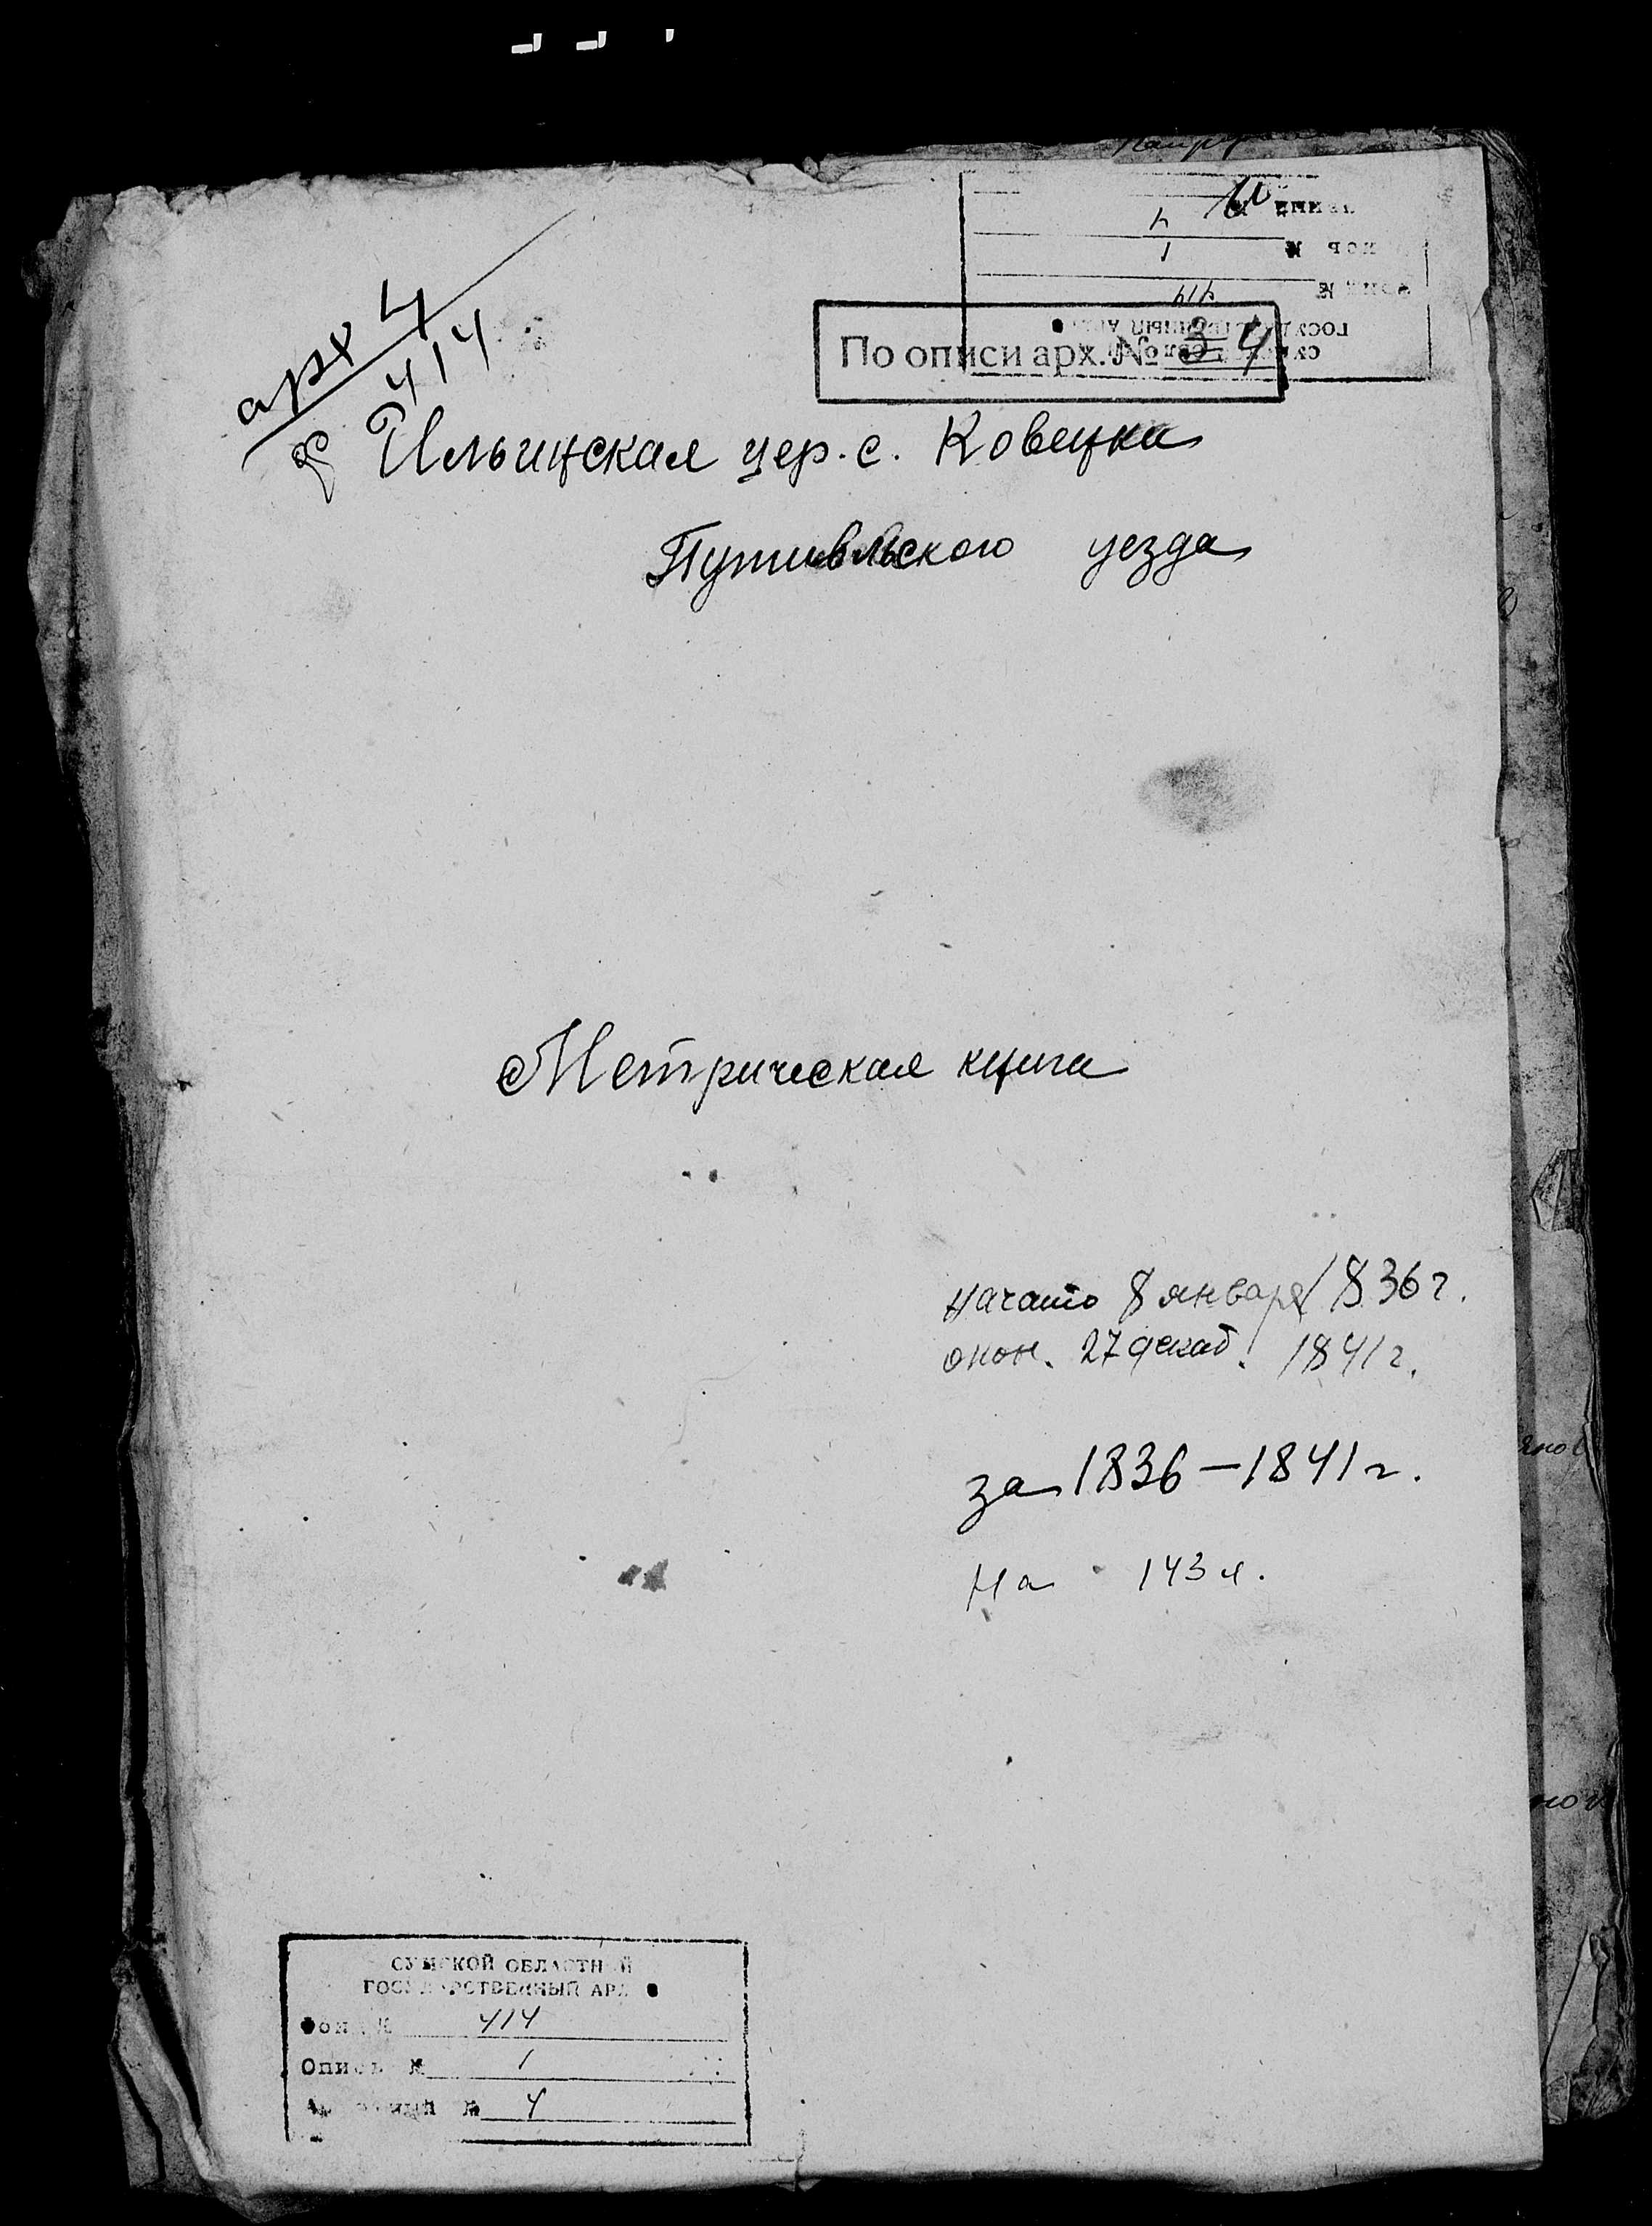 арх 4
ф 414
По описи арх. № 3 4
Ильинская цер. с. Ковенки
Путивльского уезда
Метрическая книга
Начато 8 января 1836 г.
окон. 27 декаб. 1841 г.
за 1836 — 1841 г.
На 143 л.
СУМСКОЙ ОБЛАСТНОЙ
ГОСУДАРСТВЕННЫЙ АРХ
Фонд № 414
Опись № 1
№ 4